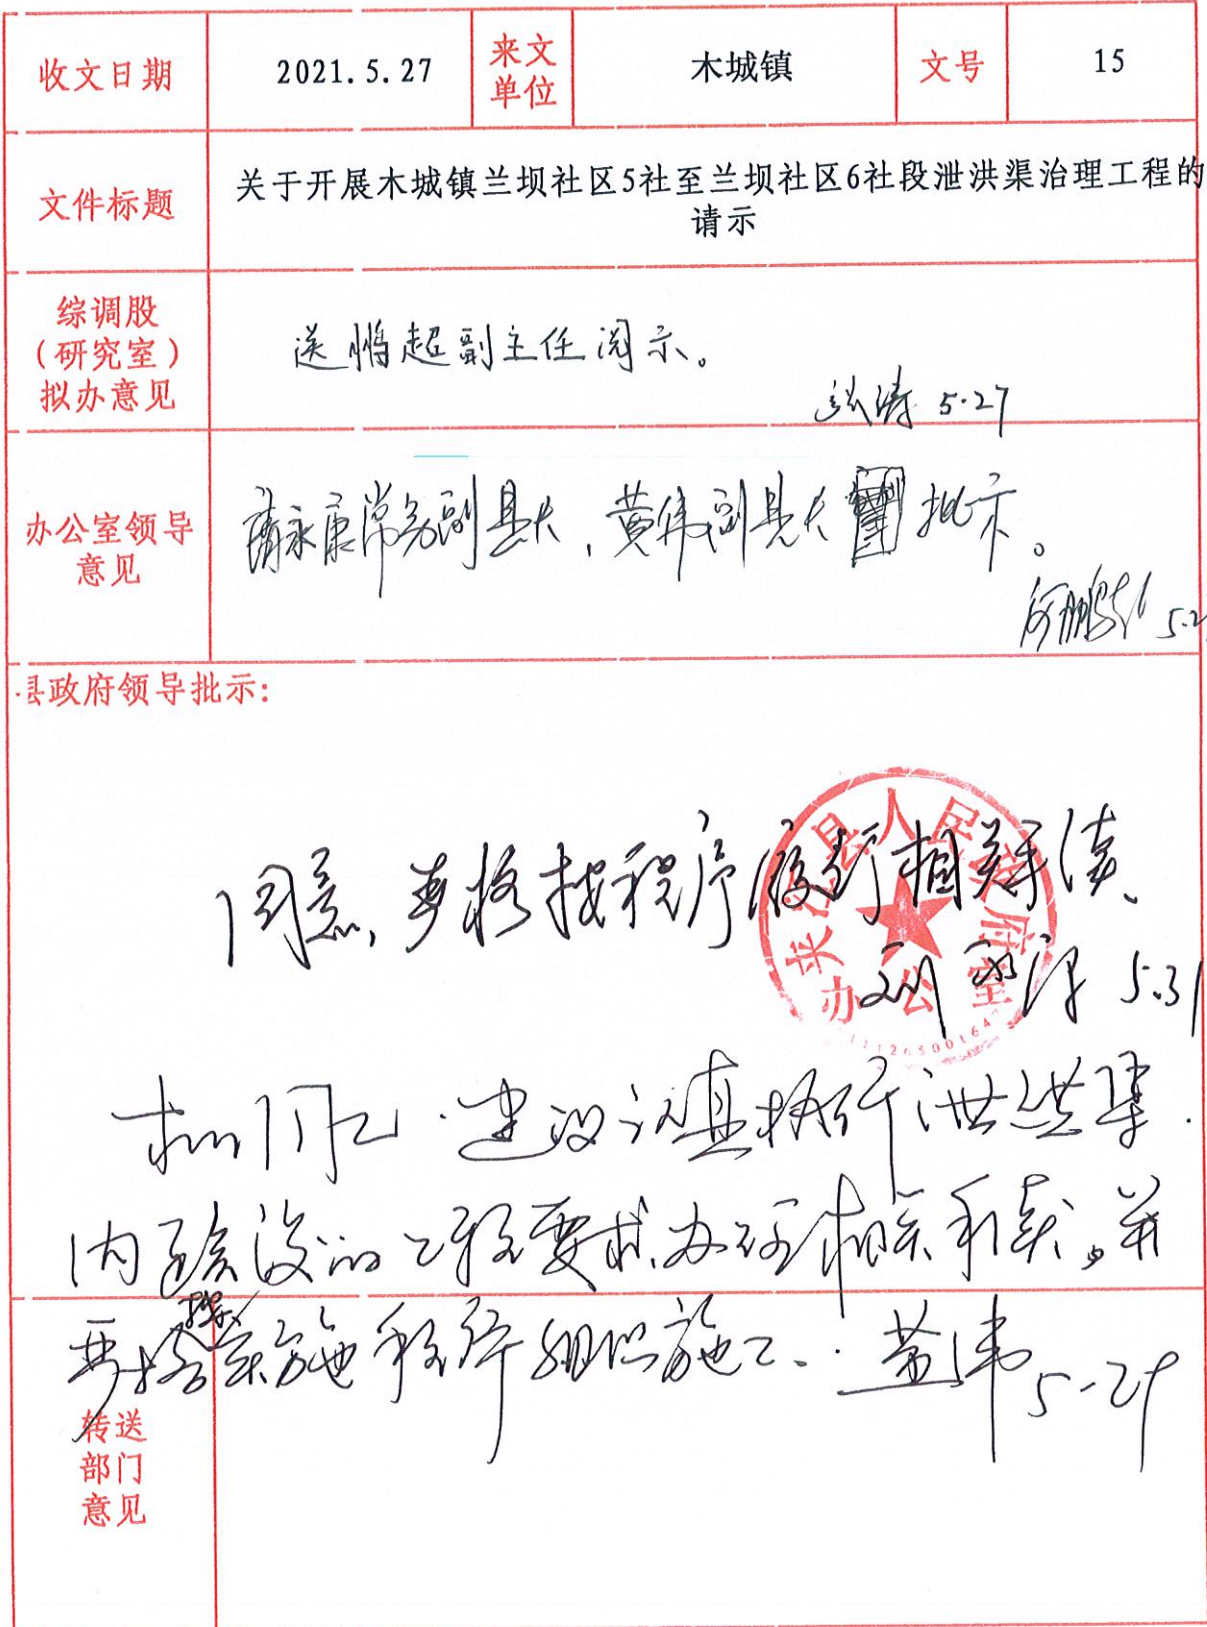 收文日期 2021.5.27 来文单位 木城镇 文号 15
文件标题 关于开展木城镇兰坝社区5社至兰坝社区6社段泄洪渠治理工程的
请示
综调股
（研究室）
拟办意见
送鹏超副主任阅示。
张涛 5.27
办公室领导
意见
请永康常务副县长、黄伟副县长批示。
何鹏超 5.2
县政府领导批示:
同意,严格按程序履行相关手续、
5.31
夹江县人民政府
办公室
拟同意.建议认真执行泄洪渠
内建设的工程要求办理相关手续。并
严格按实施程序组织施工. 黄伟 5-29
转送
部门
意见